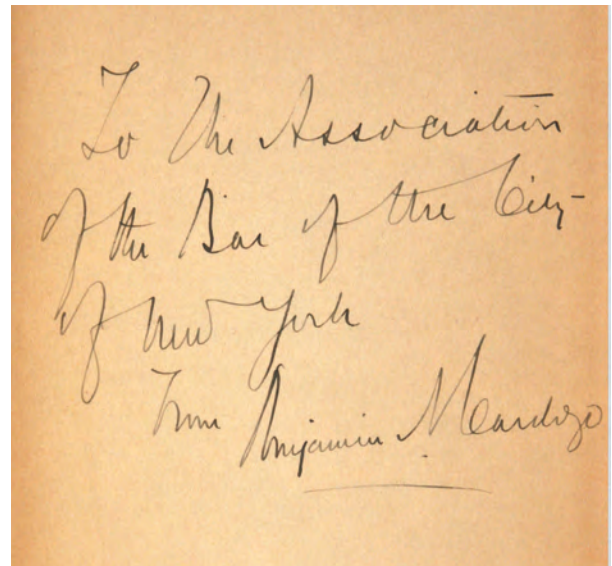 To The Association
of the Bar of the City
of New York
From Benjamin N. Cardozo